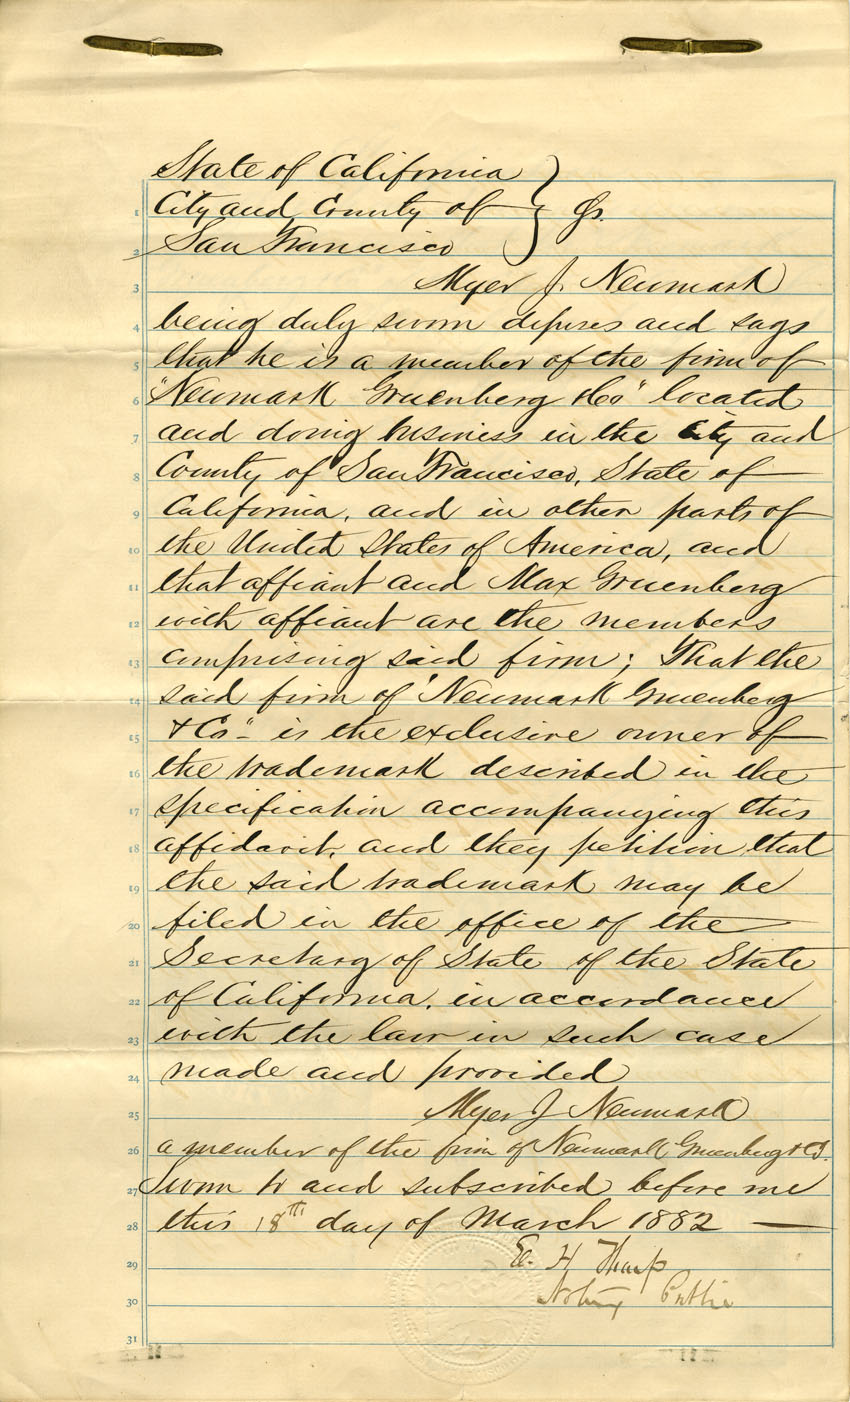 State of California
1 City and County of } ss.
2 San Francisco
3 Myer J. Newmark
4 being duly sworn deposes and says
5 that he is a member of the firm of
6 "Newmark Gruenberg & Co" located
7 and doing business in the City and
8 County of San Francisco, State of
9 California, and in other parts of
10 the United States of America, and
11 that affiant and Max Gruenberg
12 with affiant are the members
13 comprising said firm; That the
14 said firm of "Newmark Gruenberg
15 & Co" is the exclusive owner of
16 the trademark described in the
17 specification accompanying this
18 affidavit, and they petition that
19 the said trademark may be
20 filed in the office of the
21 Secretary of State of the State
22 of California, in accordance
23 with the law in such case
24 made and provided
25 Myer J Newmark
26 a member of the firm of Newmark Gruenberg & Co.
27 Sworn to and subscribed before me
28 this 18th day of March 1882 —
29 E. H. Tharp
30 Notary Public
31